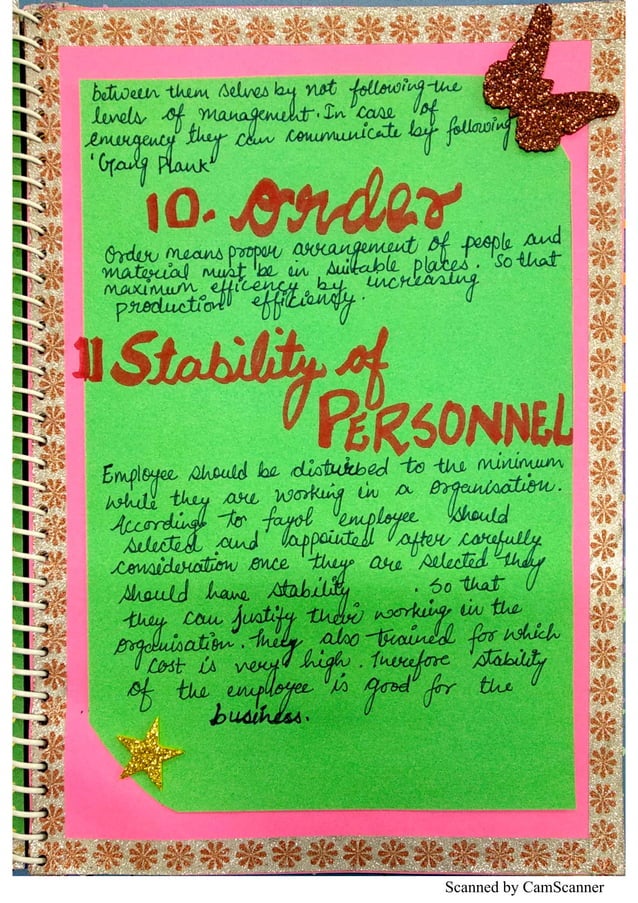 between them selves by not following the
levels of management. In case of
emergency they can communicate by following
'Gang Plank'
10. order
Order means proper arrangement of people and
material must be in suitable places. So that
maximum efficency by increasing
production efficiency.
11 Stability of
PERSONNEL
Employee should be disturbed to the minimum
while they are working in a organisation.
According to fayol employee should
selected and appointed after carefully
consideration once they are selected they
should have stability . So that
they can justify their working in the
organisation. They also trained for which
cost is very high. Therefore stability
of the employee is good for the
business.
Scanned by CamScanner